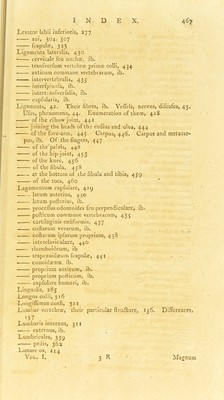 INDEX. 467
Levator labii inferioris, 277
—— ani, 304. 307
—— scapulæ, 323
Ligamenta lateralia, 430
—— cervicale seu nuchæ, ib.
—— transversum vertebræ primæ colli, 434
—— anticum commune vertebrarum, ib.
—— intervertebralia, 435
—— interspinalia, ib.
—— intertransversalia, ib.
—— capsularia, ib.
Ligaments, 42. Their fibres, ib. Vessels, nerves, diseases, 43.
Uses, phenomena, 44. Enumeration of them, 428
—— of the elbow joint, 442
—— joining the heads of the radius and ulna, 444
—— of the fore-arm, 445. Carpus, 446. Carpus and metacarpus, ib. Of the fingers, 447
—— of the pelvis, 448
—— of the hip-joint, 453
—— of the knee, 456
—— of the fibula, 458
—— at the bottom of the fibula and tibia, 459
—— of the toes, 460
Lagamentum capsulare, 429
—— latum anterius, 430
—— latum posterius, ib.
—— processus odontoides seu perpendiculare, ib.
—— posticum commune vertebrarum, 435
—— cartilaginis ensiformis, 437
—— costarum verarum, ib.
—— costarum ipsarum proprium, 438
—— interclaviculare, 440
—— rhomboideum, ib
—— trapezoideum scapulæ, 441
—— conoideum, ib.
—— proprium anticum, ib.
—— proprium posticum, ib.
—— capsulare humeri, ib.
Lingualis, 283
Longus colli, 316
Longissimus dorsi, 321
Lumbar vertebræ, their particular structure, 136. Differences,
137
Lumbaris internus, 311
—— externus, ib.
Lumbricales, 339
—— pedis, 362
Lunare os, 214
VOL. I. 3 R Magnum